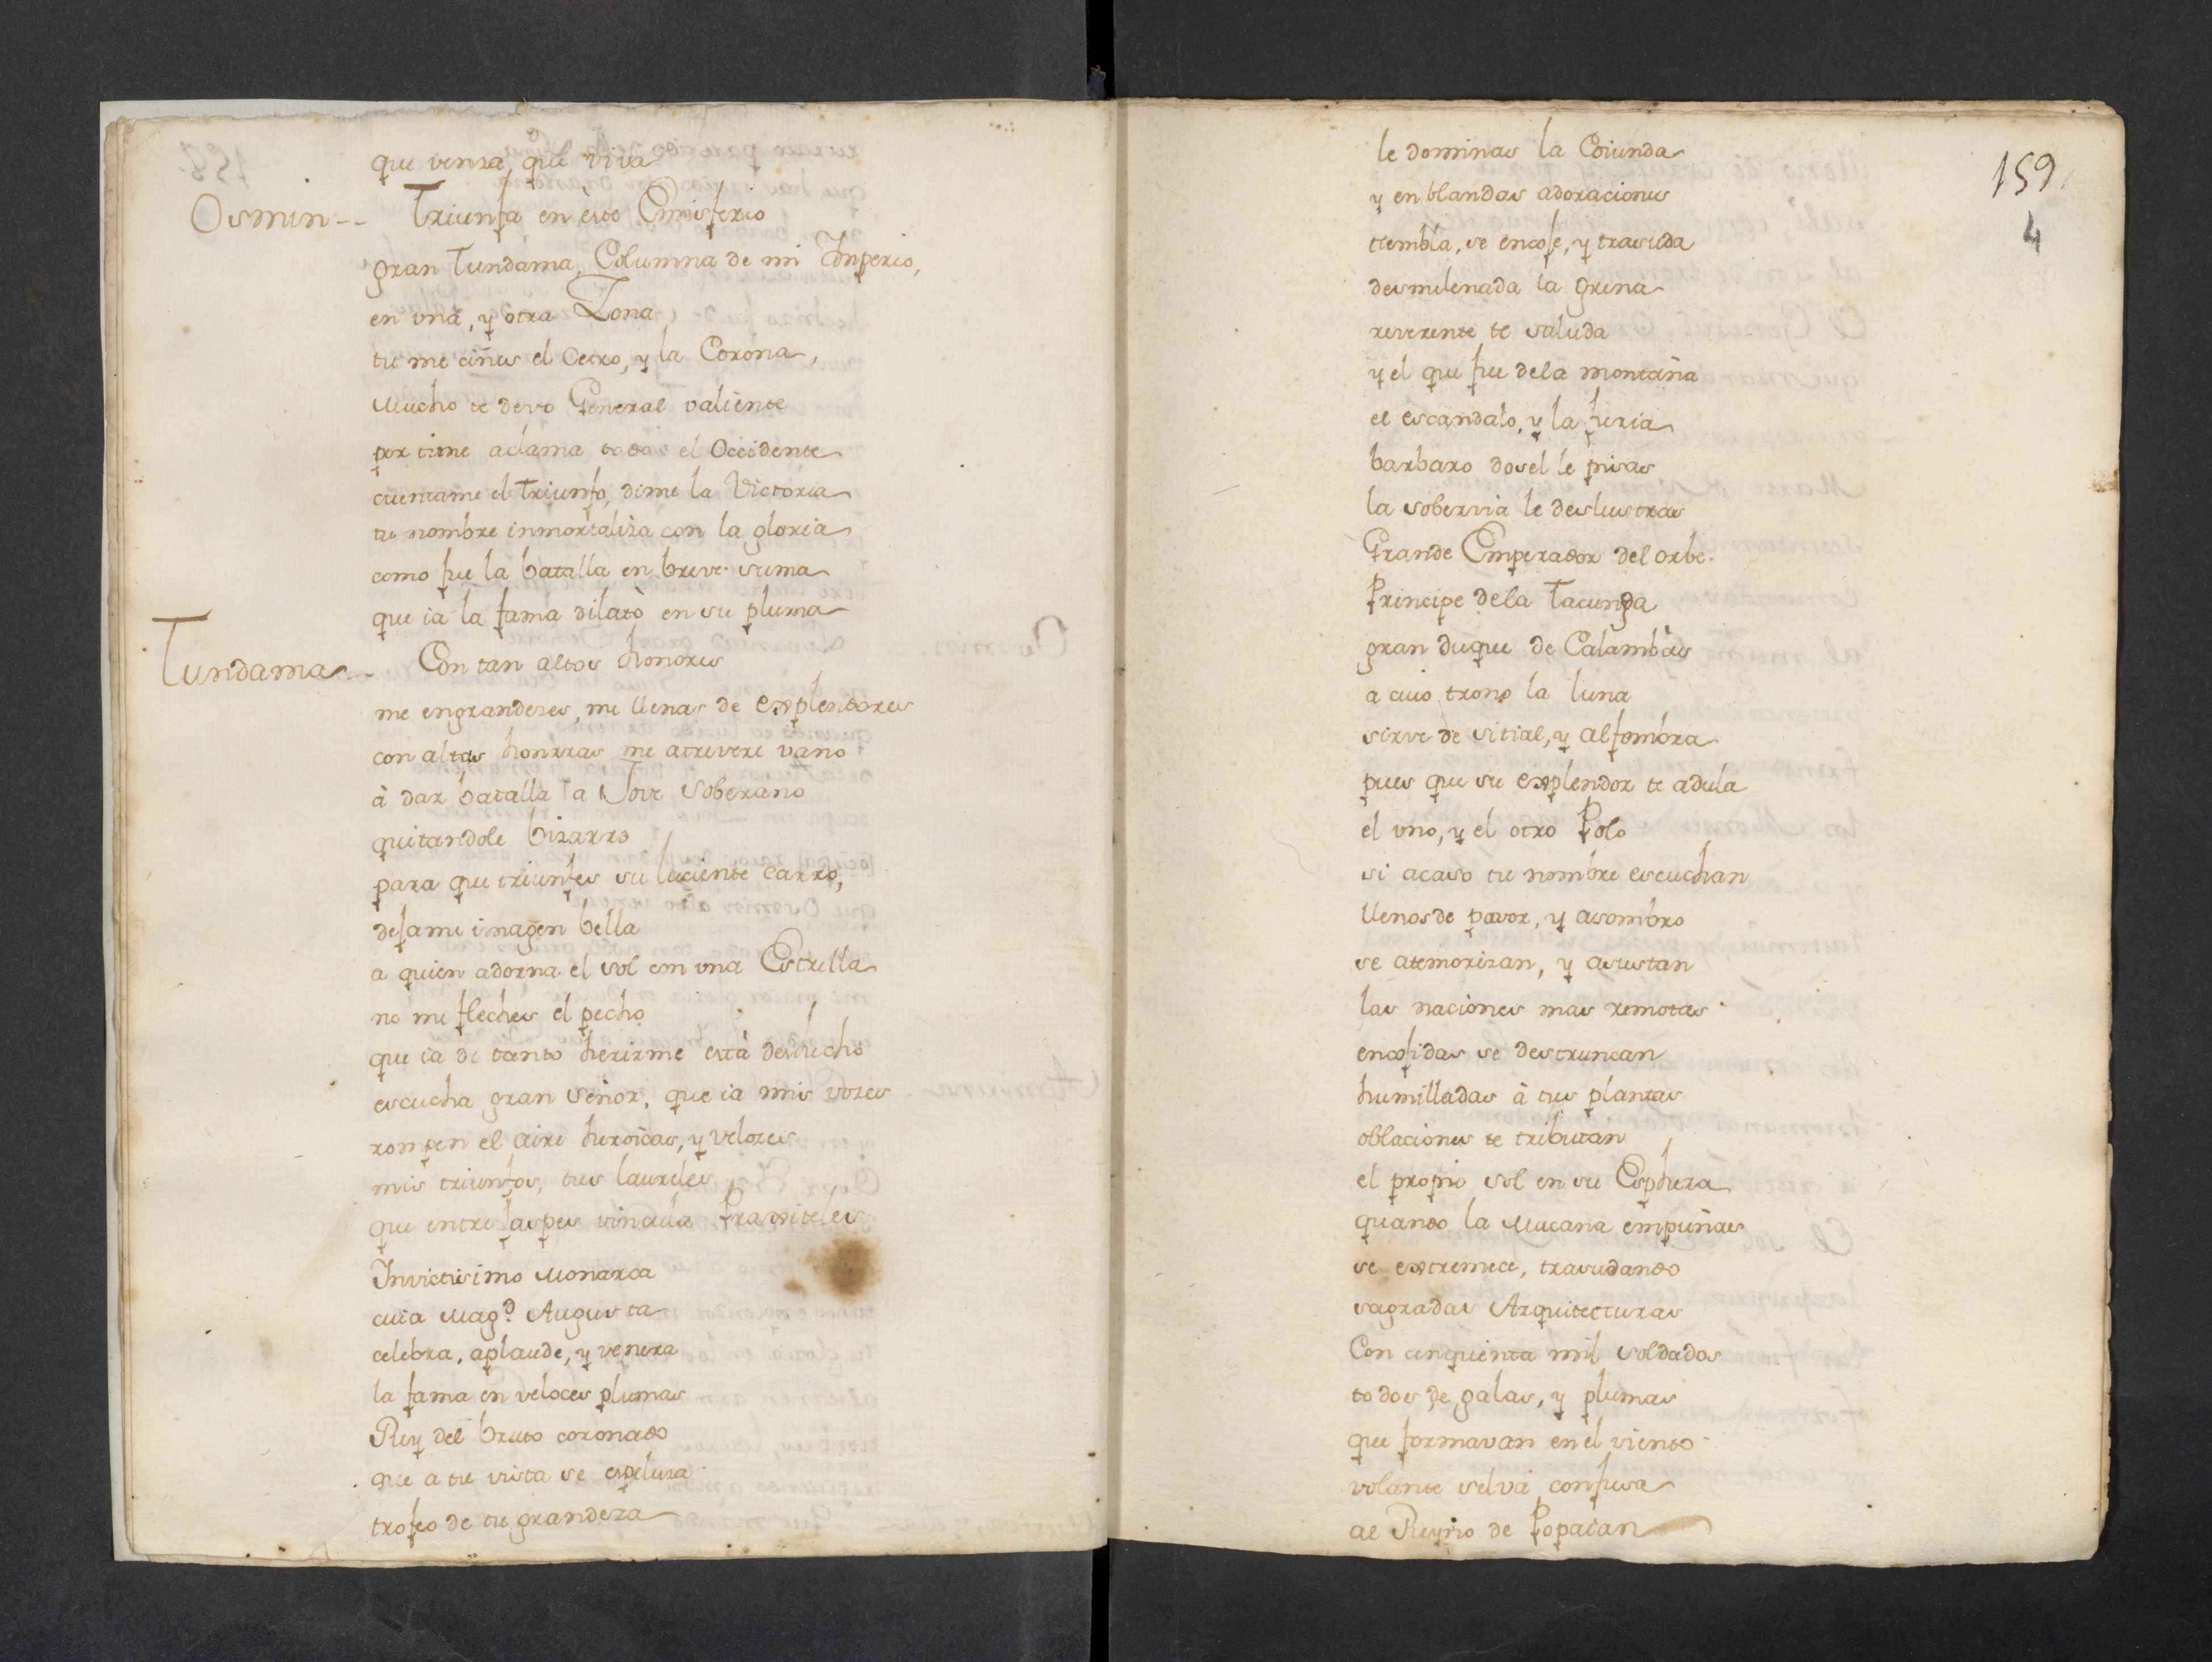 que venza, que viva
Osmin-- Triunfa en este Emisferio
gran Tundama, Columna de mi Inperio,
en vna, y otra Zona
tu me ciñes el Cetro, y la Corona,
Mucho te devo General valiente
por ti me aclama todo el Occidente
cuentame el triunfo, dime la Victoria
tu nombre inmortaliza con la gloria
como fue la batalla en breve suma
que ia la fama dilatò en su pluma
Tundama-- Con tan altos honores
me engrandezes, me llenas de explendores
con altas honrras me atrevere vano
à dar batalla a Jove Soberano
quitandole bizarro
para que triunfes su luciente carro,
desame imagen bella
a quien adorna el sol con vna Estrella
no me fleches el pecho
que ia de tanto herirme està deshecho
escucha gran señor, que ia mis vozes
rompen el aire heroicas, y velozes
mis triunfos, tus laureles
que entre jaspes vincula Praxiteles
Invictisimo Monarca
cuia Magd. Augusta
celebra, aplaude, y venera
la fama en veloces plumas
Rey del bruto coronado
que a tu vista se espeluza
trofeo de tu grandeza
159
4
le dominas la Coiunda
y en blandas adoraciones
tiembla, se encoje, y trasuda
desmelenada la grena
reverente te saluda
y el que fue dela montaña
el escandalo, y la furia
barbaro dosel le pisas
la sobervia le deslustras
Grande Emperador del orbe.
Principe dela Tacunga
gran duque de Calambàs
a cuio trono la luna
sirve de sitial, y alfombra
pues que su explendor te adula
el vno, y el otro Polo
si acaso tu nombre escuchan
llenos de pavor, y asombro
se atemorizan, y asustan
las naciones mas remotas
encojidas se destruncan
humilladas à tus plantas
oblaciones te tributan
el propio sol en su Esphera
quando la Macana empuñas
se extremece, trasudando
sagradas Arquitecturas
Con cinquenta mil soldados
todos de galas, y plumas
que formavan en el viento
volante selva confusa
al Reyno de Popaian